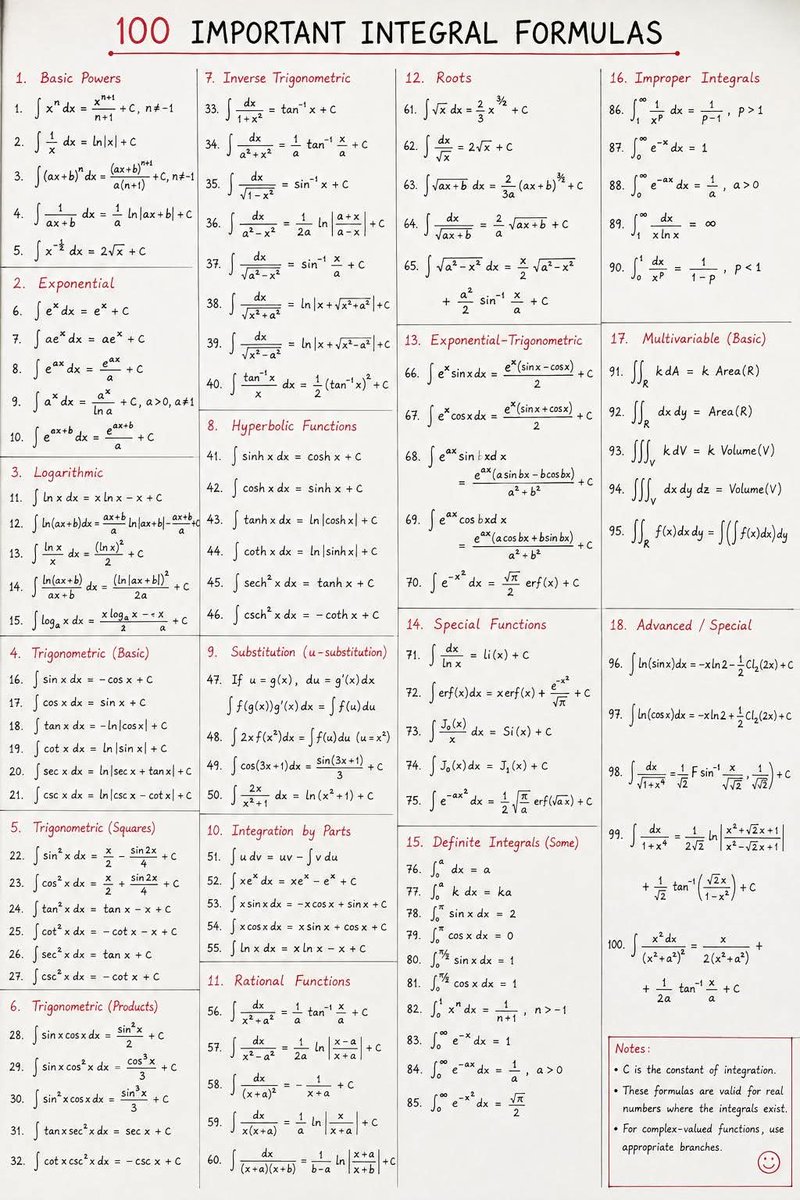 100 IMPORTANT INTEGRAL FORMULAS
1. Basic Powers
1. ∫ xⁿ dx = xⁿ⁺¹/(n+1) + C, n≠-1
2. ∫ 1/x dx = ln|x| + C
3. ∫ (ax+b)ⁿ dx = (ax+b)ⁿ⁺¹/(a(n+1)) + C, n≠-1
4. ∫ 1/(ax+b) dx = 1/a ln|ax+b| + C
5. ∫ x^(-1/2) dx = 2√x + C
2. Exponential
6. ∫ eˣ dx = eˣ + C
7. ∫ aeˣ dx = aeˣ + C
8. ∫ e^(ax) dx = e^(ax)/a + C
9. ∫ aˣ dx = aˣ/ln a + C, a>0, a≠1
10. ∫ e^(ax+b) dx = e^(ax+b)/a + C
3. Logarithmic
11. ∫ ln x dx = x ln x − x + C
12. ∫ ln(ax+b)dx = (ax+b)/a ln|ax+b| − (ax+b)/a + C
13. ∫ ln x/x dx = (ln x)²/2 + C
14. ∫ ln(ax+b)/(ax+b) dx = (ln|ax+b|)²/2a + C
15. ∫ logₐ x dx = x logₐ x − x + C
4. Trigonometric (Basic)
16. ∫ sin x dx = −cos x + C
17. ∫ cos x dx = sin x + C
18. ∫ tan x dx = −ln|cosx| + C
19. ∫ cot x dx = ln |sin x| + C
20. ∫ sec x dx = ln|sec x + tan x| + C
21. ∫ csc x dx = ln|csc x − cot x| + C
5. Trigonometric (Squares)
22. ∫ sin² x dx = x/2 − sin2x/4 + C
23. ∫ cos² x dx = x/2 + sin2x/4 + C
24. ∫ tan² x dx = tan x − x + C
25. ∫ cot² x dx = −cot x − x + C
26. ∫ sec² x dx = tan x + C
27. ∫ csc² x dx = −cot x + C
6. Trigonometric (Products)
28. ∫ sin x cos x dx = sin²x/2 + C
29. ∫ sin x cos² x dx = cos³x/3 + C
30. ∫ sin² x cos x dx = sin³x/3 + C
31. ∫ tan x sec² x dx = sec x + C
32. ∫ cot x csc² x dx = −csc x + C
7. Inverse Trigonometric
33. ∫ dx/(1+x²) = tan⁻¹ x + C
34. ∫ dx/(a²+x²) = 1/a tan⁻¹ x/a + C
35. ∫ dx/√(1−x²) = sin⁻¹ x + C
36. ∫ dx/(a²−x²) = 1/2a ln |(a+x)/(a−x)| + C
37. ∫ dx/√(a²−x²) = sin⁻¹ x/a + C
38. ∫ dx/√(x²+a²) = ln |x + √(x²+a²)| + C
39. ∫ dx/√(x²−a²) = ln |x + √(x²−a²)| + C
40. ∫ tan⁻¹x/x dx = 1/2 (tan⁻¹x)² + C
8. Hyperbolic Functions
41. ∫ sinh x dx = cosh x + C
42. ∫ cosh x dx = sinh x + C
43. ∫ tanh x dx = ln |cosh x| + C
44. ∫ coth x dx = ln |sinhx| + C
45. ∫ sech² x dx = tanh x + C
46. ∫ csch² x dx = −coth x + C
9. Substitution (u-substitution)
47. If u = g(x), du = g'(x)dx
∫ f(g(x))g'(x)dx = ∫ f(u)du
48. ∫ 2xf(x²)dx = ∫ f(u)du (u=x²)
49. ∫ cos(3x+1)dx = sin(3x+1)/3 + C
50. ∫ 2x/(x²+1) dx = ln(x²+1) + C
10. Integration by Parts
51. ∫ u dv = uv − ∫ v du
52. ∫ xeˣ dx = xeˣ − eˣ + C
53. ∫ x sin x dx = −x cos x + sin x + C
54. ∫ x cos x dx = x sin x + cos x + C
55. ∫ ln x dx = x ln x − x + C
11. Rational Functions
56. ∫ dx/(x²+a²) = 1/a tan⁻¹ x/a + C
57. ∫ dx/(x²−a²) = 1/2a ln |(x−a)/(x+a)| + C
58. ∫ dx/(x+a)² = −1/(x+a) + C
59. ∫ dx/(x(x+a)) = 1/a ln |x/(x+a)| + C
60. ∫ dx/((x+a)(x+b)) = 1/(b−a) ln |(x+a)/(x+b)| + C
12. Roots
61. ∫ √x dx = 2/3 x^(3/2) + C
62. ∫ dx/√x = 2√x + C
63. ∫ √(ax+b) dx = 2/3a (ax+b)^(3/2) + C
64. ∫ dx/√(ax+b) = 2/a √(ax+b) + C
65. ∫ √(a²−x²) dx = x/2 √(a²−x²)
+ a²/2 sin⁻¹ x/a + C
13. Exponential-Trigonometric
66. ∫ eˣ sinx dx = eˣ(sinx − cosx)/2 + C
67. ∫ eˣ cosx dx = eˣ(sinx + cosx)/2 + C
68. ∫ e^(ax) sin xd x
= e^(ax)(a sin bx − b cos bx)/(a²+b²) + C
69. ∫ e^(ax) cos bxd x
= e^(ax)(a cos bx + b sin bx)/(a²+b²) + C
70. ∫ e^(−x²) dx = √π/2 erf(x) + C
14. Special Functions
71. ∫ dx/ln x = li(x) + C
72. ∫ erf(x)dx = x erf(x) + e^(−x²)/√π + C
73. ∫ J₀(x)/x dx = Si(x) + C
74. ∫ J₀(x)dx = J₁(x) + C
75. ∫ e^(−ax²) dx = 1/2 √(π/a) erf(√ax) + C
15. Definite Integrals (Some)
76. ∫₀ᵃ dx = a
77. ∫₀ᵃ k dx = ka
78. ∫₀^π sin x dx = 2
79. ∫₀^π cos x dx = 0
80. ∫₀^(π/2) sin x dx = 1
81. ∫₀^(π/2) cos x dx = 1
82. ∫₀¹ xⁿ dx = 1/(n+1), n>−1
83. ∫₀^∞ e^(−x) dx = 1
84. ∫₀^∞ e^(−ax) dx = 1/a, a>0
85. ∫₀^∞ e^(−x²) dx = √π/2
16. Improper Integrals
86. ∫₁^∞ 1/xᵖ dx = 1/(p−1), p>1
87. ∫₀^∞ e^(−x) dx = 1
88. ∫₀^∞ e^(−ax) dx = 1/a, a>0
89. ∫₁^∞ dx/(x ln x) = ∞
90. ∫₀¹ dx/xᵖ = 1/(1−p), p<1
17. Multivariable (Basic)
91. ∬_R k dA = k Area(R)
92. ∬_R dx dy = Area(R)
93. ∭_V k dV = k Volume(V)
94. ∭_V dx dy dz = Volume(V)
95. ∬_R f(x)dx dy = ∫(∫ f(x)dx)dy
18. Advanced / Special
96. ∫ ln(sinx)dx = −xln2 − 1/2 Cl₂(2x) + C
97. ∫ ln(cosx)dx = −xln2 + 1/2 Cl₂(2x) + C
98. ∫ dx/√(1+x⁴) = 1/√2 F sin⁻¹
99. ∫ dx/(1+x⁴) = 1/(2√2) ln |(x²+√2x+1)/(x²−√2x+1)|
+ 1/√2 tan⁻¹(√2x/(1−x²)) + C
100. ∫ x²dx/(x²+a²)² = x/(2(x²+a²)) +
+ 1/2a tan⁻¹ x/a + C
Notes:
• C is the constant of integration.
• These formulas are valid for real
numbers where the integrals exist.
• For complex-valued functions, use
appropriate branches.